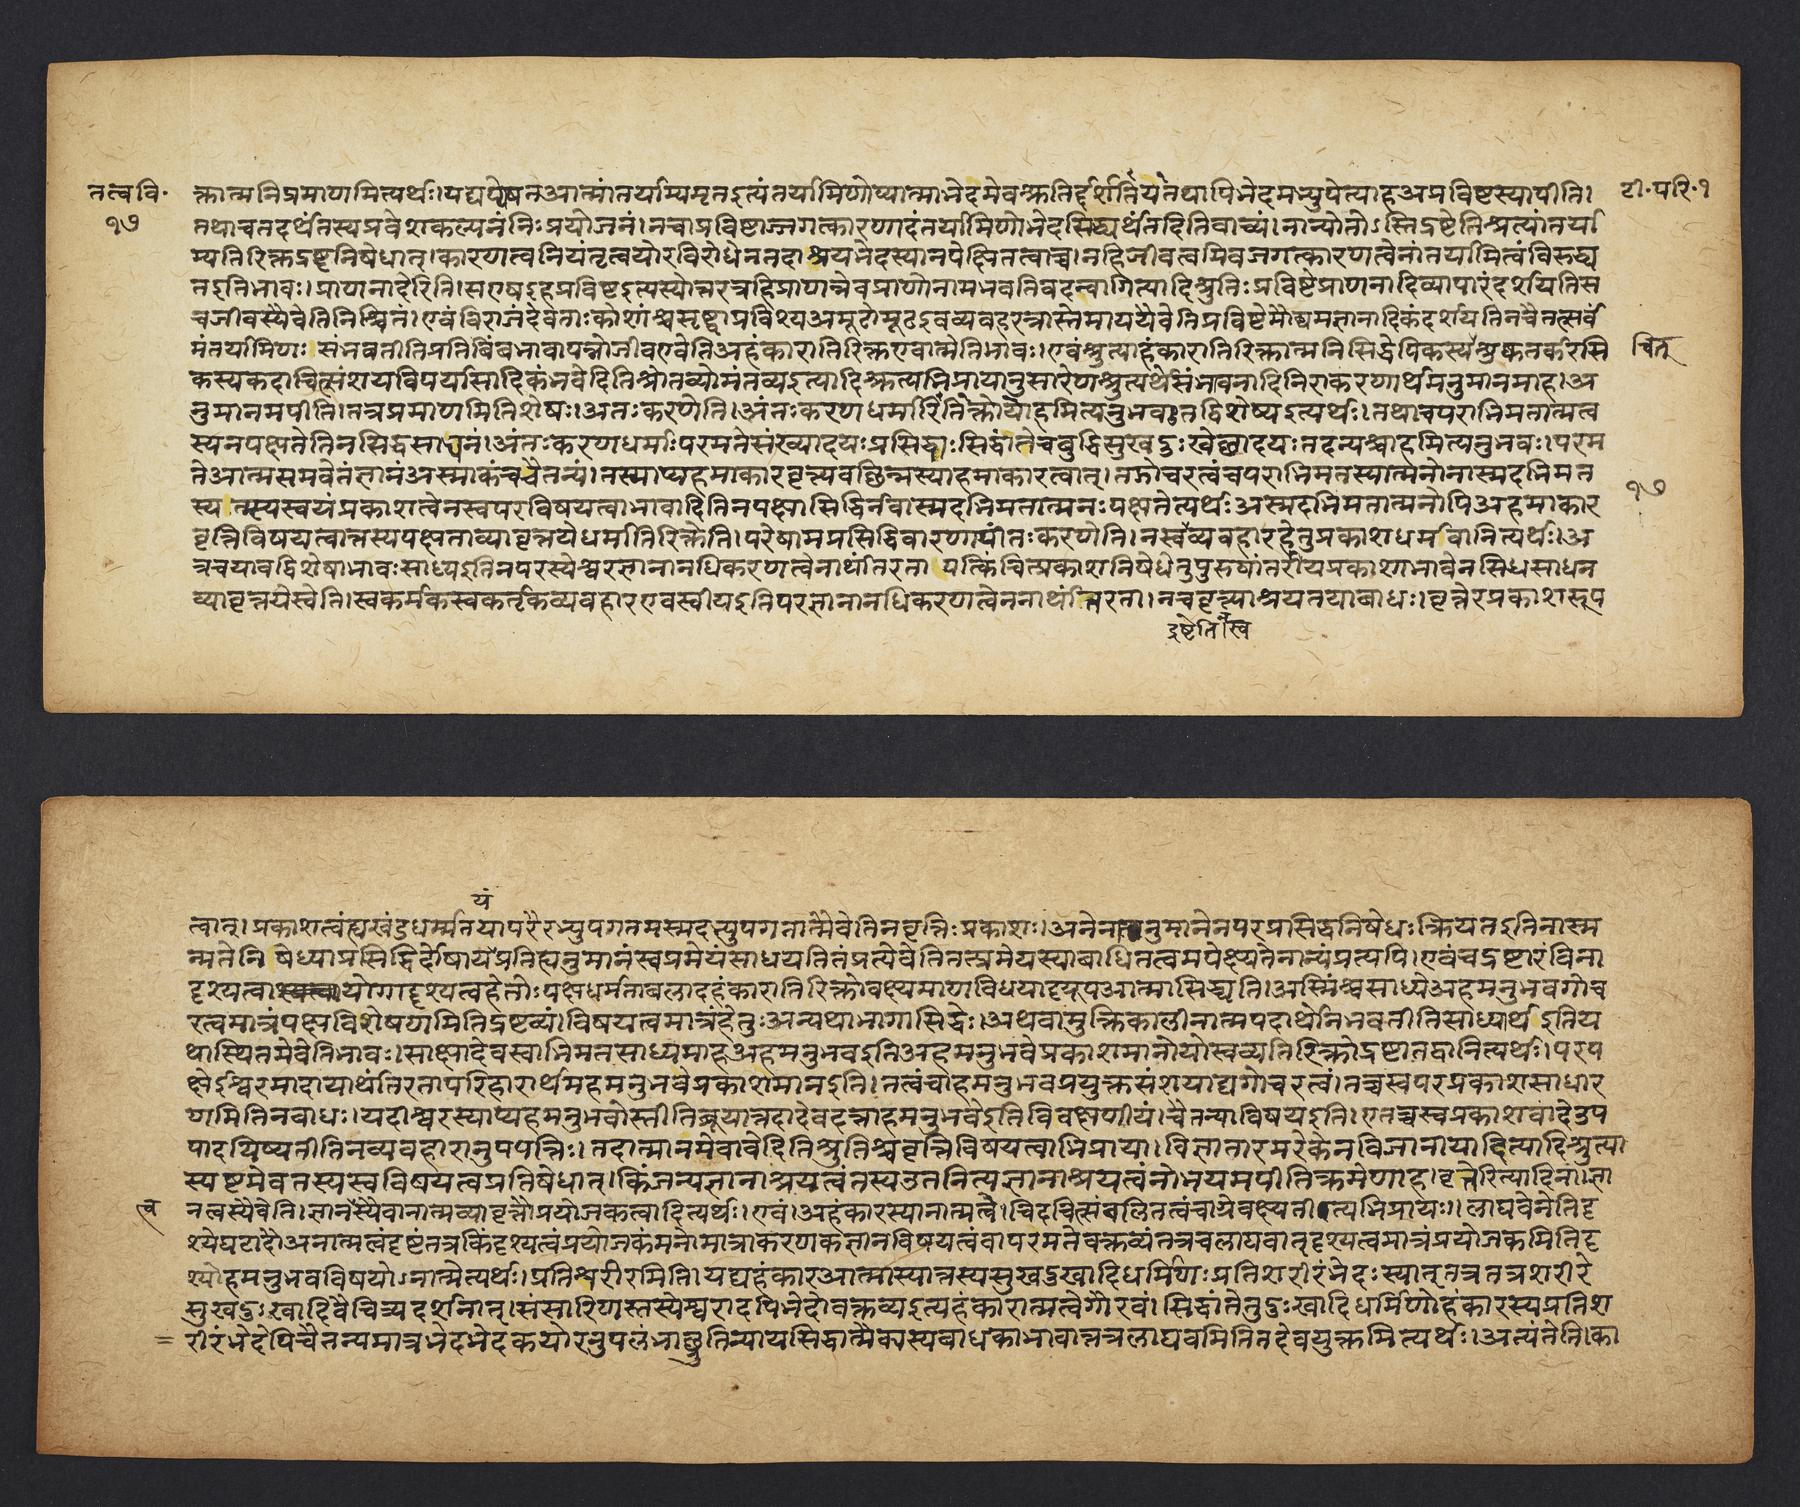 तत्ववि॰
१७
टी॰परि॰१
क्तात्मनिप्रमाणमित्यर्थः।यद्यप्येषतआत्मांतर्याम्यमृतइत्यंतर्यामिणोप्यात्माभेदमेवश्रुतिर्दर्शयतितथापिभेदमभ्युपेत्याहअप्रविष्टस्यापीति।
तथाचतदर्थंतस्यप्रवेशकल्पनंनिःप्रयोजनं।नचाप्रविष्टाज्जगत्कारणादंतर्यामिणोभेदसिद्ध्यर्थंतदितिवाच्यं।नान्योतोऽस्तिद्रष्टेतिश्रुत्यांतर्या
म्यतिरिक्तद्रष्टृनिषेधात्।कारणत्वनियंतृत्वयोरविरोधेनतदाश्रयभेदस्यानपेक्षितत्वाच्च।नहिजीवत्वमिवजगत्कारणत्वेनांतर्यामित्वंविरुद्ध्य
तइतिभावः।प्राणनादेरिति।सएषइहप्रविष्टइत्यस्योत्तरत्रहिप्राणन्नेवप्राणोनामभवतिवदन्वागित्यादिश्रुतिःप्रविष्टेप्राणनादिव्यापारंदर्शयतिस
चजीवस्यैवेतिनिश्चितं।एवंविराजंदेवताःकोशांश्चसृष्ट्वाप्रविश्यअमूढोमूढइवव्यवहरन्नास्तेमाययैवेतिप्रविष्टेमौढ्यमज्ञानादिकंदर्शयतिनचैतत्सर्व
मंतर्यामिणः संभवतीतिप्रतिबिंबभावापन्नोजीवएवेतिअहंकारातिरिक्तएवात्मेतिभावः।एवंश्रुत्याहंकारातिरिक्तात्मनिसिद्धेपिकस्यशुष्कतर्करसि
चित्
कस्यकदाचित्संशयविपर्यासादिकंभवेदितिश्रोतव्योमंतव्यइत्यादिश्रुत्यभिप्रायानुसारेणश्रुत्यर्थेसंभावनादिनिराकरणार्थमनुमानमाह।अ
नुमानमपीति।तत्रप्रमाणमितिशेषः।अंतःकरणेति।अंतःकरणधर्मातिरिक्तोयोहमित्यनुभवःतद्विशेष्यइत्यर्थः।तथाचपराभिमतात्मत्व
स्यनपक्षतेतिनसिद्धसाधनं।अंतःकरणधर्माःपरमतेसंख्यादयःप्रसिद्धाःसिद्धांतेचबुद्धिसुखदुःखेछादयःतदन्यश्चाहमित्यनुभवः।परम
तेआत्मसमवेतंज्ञानंअस्माकंचचैतन्यं।तस्याप्यहमाकारवृत्त्यवछिन्नस्याहमाकारत्वात्।तद्गोचरत्वंचपराभिमतस्यात्मनोनास्मदभिमत
१७
स्य तस्यस्वयंप्रकाशत्वेनस्वपरविषयत्वाभावादितिनपक्षासिद्धिर्नवास्मदभिमतात्मनःपक्षतेत्यर्थःअस्मदभिमतात्मनोपिअहमाकार
वृत्तिविषयत्वात्तस्यपक्षताव्यावृत्तयेधर्मातिरिक्तेति।परेषामप्रसिद्धिवारणायांतःकरणेति।नस्वव्यवहारहेतुप्रकाशधर्मवानित्यर्थः।अ
त्रचयावद्विशेषाभावःसाध्यइतिनपरस्येश्वरज्ञानानधिकरणत्वेनार्थांतरता यत्किंचित्प्रकाशनिषेधेतुपुरुषांतरीयप्रकाशाभावेनसिधसाधन
व्यावृत्तयेस्वेति।स्वकर्मकस्वकर्तृकव्यवहारएवस्वीयइतिपरज्ञानानधिकरणत्वेननार्थांतरता।नचवृत्त्याश्रयतयाबाधः।वृत्तेरप्रकाशरूप
द्रष्टेति।स्व
यं
त्वात्।प्रकाशत्वंह्यखंडधर्मतयापरैरभ्युपगतमस्मदभ्युपगतात्मैवेतिनवृत्तिःप्रकाशः।अनेनानुमानेनपरप्रसिद्धनिषेधःक्रियतइतिनास्म
न्मतेनिषेध्याप्रसिद्धिर्दोषायप्रतिह्यनुमानंस्वप्रमेयंसाधयतितंप्रत्येवेतितत्प्रमेयस्याबाधितत्वमपेक्ष्यतेनान्यंप्रत्यपि।एवंचद्रष्टारंविना
दृश्यत्वायोगादृश्यत्वहेतोःपक्षधर्मताबलादहंकारातिरिक्तोवक्ष्यमाणविधयादृग्रूपआत्मासिद्ध्यति।अस्मिंश्चसाध्येअहमनुभवगोच
रत्वमात्रंपक्षविशेषणमितिद्रष्टव्यं।विषयत्वमात्रंहेतुःअन्यथाभागासिद्धेः।अथवामुक्तिकालीनात्मपदार्थेनिभवतीतिसोध्यार्थ इतिय
थास्थितमेवेतिभावः।साक्षादेवस्वाभिमतसाध्यमाहअहमनुभवइतिअहमनुभवेप्रकाशमानोयोस्वव्यतिरिक्तोद्रष्टातद्वानित्यर्थः।परप
क्षेईश्वरमादायार्थांतरतापरिहारार्थमहमनुभवेप्रकाशमानइति।तत्वंचाहमनुभवप्रयुक्तसंशयाद्यगोचरत्वं।तच्चस्वपरप्रकाशसाधार
णमितिनबाधः।यदीश्वरस्याप्यहमनुभवोस्तीतिब्रूयात्तदादेवदत्ताहमनुभवेइतिविवक्षणीयं।चैतन्याविषयइति।एतच्चस्वप्रकाशवादेउप
पादयिष्यतीतिनव्यवहारानुपपत्तिः।तदात्मानमेवावेदितिश्रुतिश्चवृत्तिविषयत्वाभिप्राया।विज्ञातारमरेकेनविजानीयादित्यादिश्रुत्या
स्पष्टमेवतस्यस्वविषयत्वप्रतिषेधात्।किंजन्यज्ञानाश्रयत्वंतस्यउतनित्यज्ञानाश्रयत्वंनोभयमपीतिक्रमेणाह।वृत्तेरित्यादिना।ज्ञा
त्व
नत्वस्यैवेति।ज्ञानस्यैवानात्मव्यावृत्तौप्रयोजकत्वादित्यर्थः।एवं।अहंकारस्यानात्मत्वे।चिदचित्संवलितत्वंचाग्रेवक्ष्यतीत्यभिप्रायः।लाघवेनेतिदृ
श्येघटादौअनात्मत्वंदृष्टंतत्रकिंदृश्यत्वंप्रयोजकंमनोमात्राकरणकज्ञानविषयत्वंवापरमतेवक्तव्यंतत्रचलाघवात्दृश्यत्वमात्रंप्रयोजकमितिदृ
श्योहमनुभवविषयोऽनात्मेत्यर्थः।प्रतिश्वरीरमिति।यद्यहंकारआत्मास्यात्तस्यसुखदुखादिधर्मिणःप्रतिशरीरंभेदःस्यात्तत्रतत्रशरीरे
सुखदुःखादिवैचित्र्यदर्शनात्।संसारिणस्तस्येश्वरादपिभेदोवक्तव्यइत्यहंकारात्मत्वेगौरवं।सिद्धांतेतुदुःखादिधर्मिणोहंकारस्यप्रतिश
= रीरंभेदेपिचैतन्यमात्रभेदभेदकयोरनुपलंभाच्छ्रुतिन्यायसिद्धात्मैक्यस्यबाधकाभावात्तत्रलाघवमितितदेवयुक्तमित्यर्थः।अत्यंतेति।का